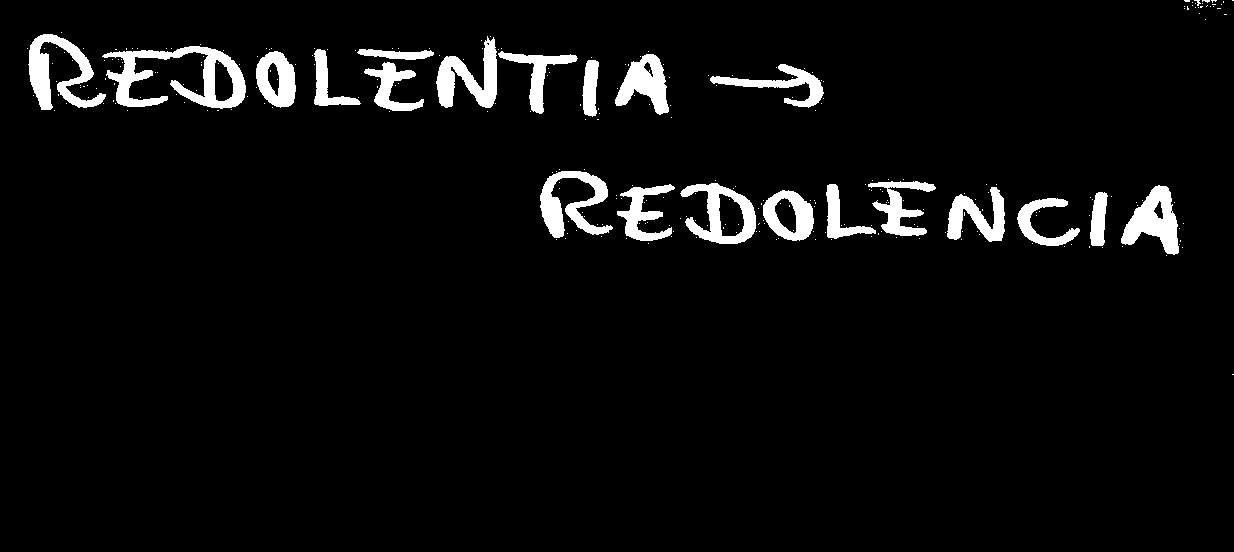 REDOLENTIA →
REDOLENCIA